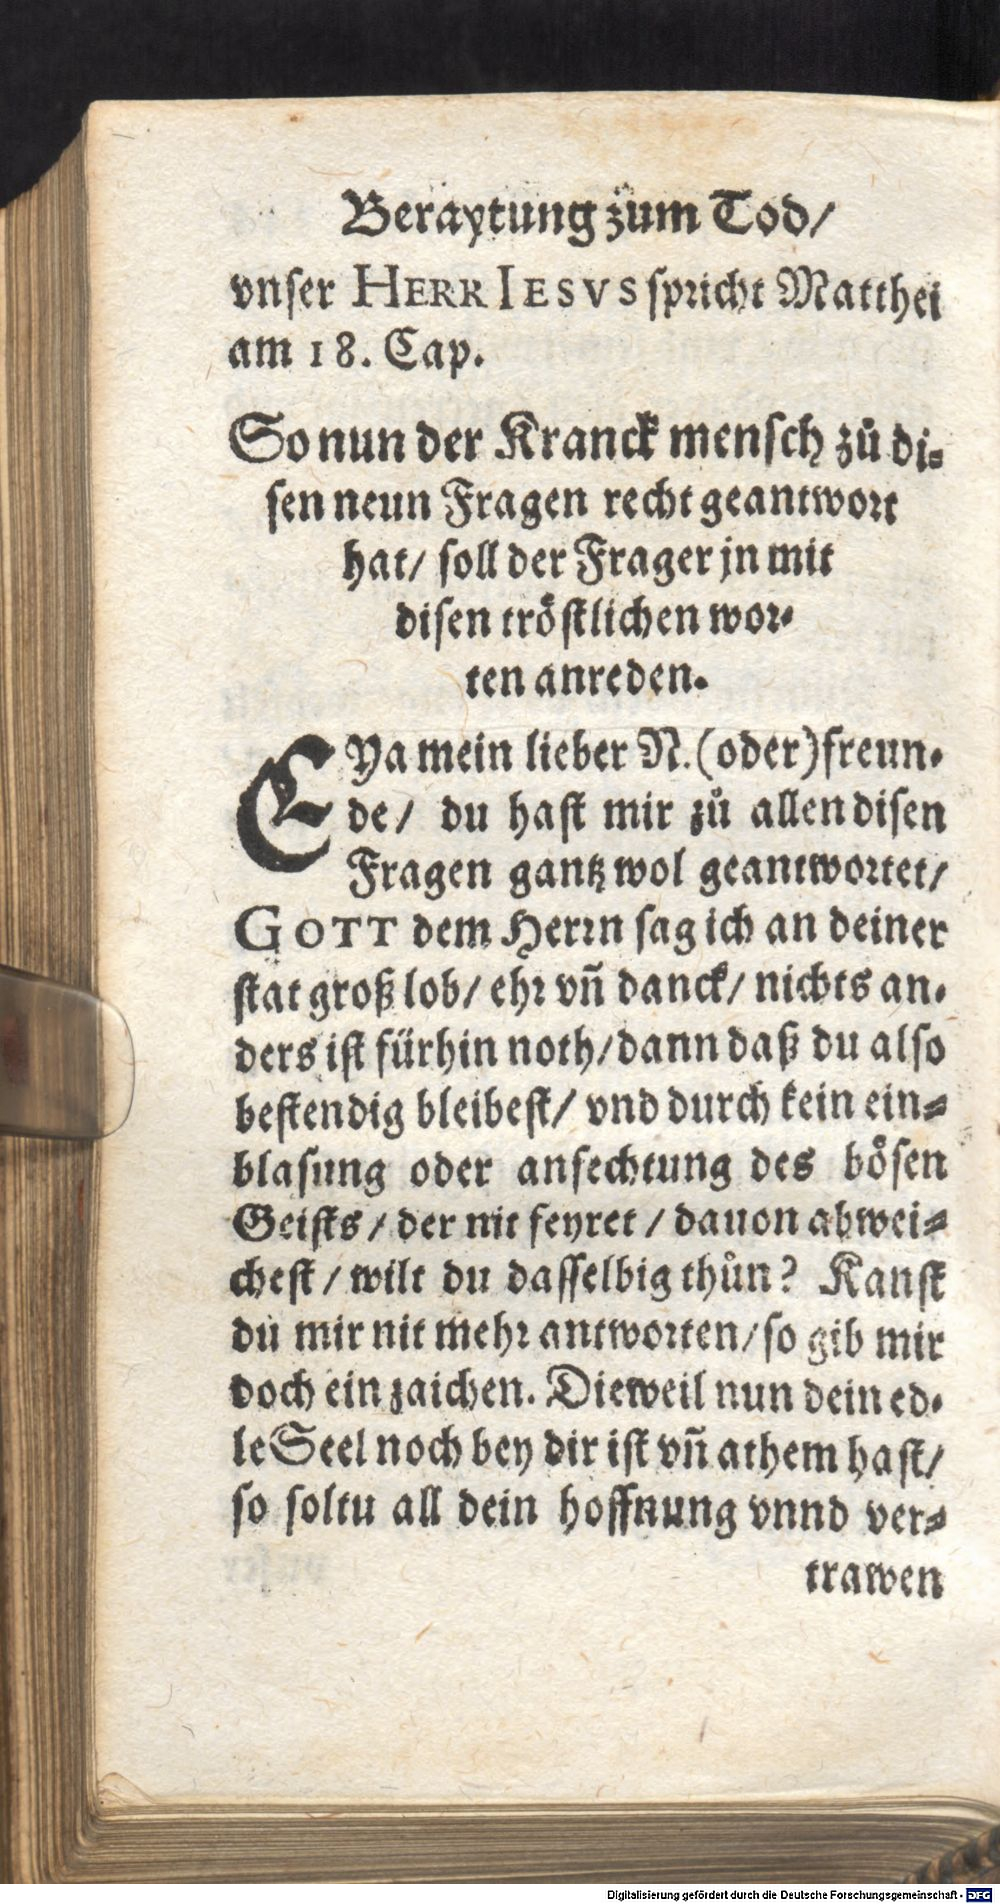 Beraytung zum Tod/
vnser HERR IESVS spricht Matthei
am 18. Cap.
So nun der Kranck mensch zů di-
sen neun Fragen recht geantwort
hat/ soll der Frager jn mit
disen tröstlichen wor-
ten anreden.
EYa mein lieber N. (oder) freun-
de/ du hast mir zů allen disen
Fragen gantz wol geantwortet/
GOTT dem Herrn sag ich an deiner
stat groß lob/ ehr vñ danck/ nichts an-
ders ist fürhin noth/ dann daß du also
bestendig bleibest/ vnd durch kein ein-
blasung oder anfechtung des bösen
Geists/ der nit feyret/ dauon abwei-
chest/ wilt du dasselbig thůn? Kanst
du mir nit mehr antworten/ so gib mir
doch ein zaichen. Dieweil nun dein ed-
le Seel noch bey dir ist vñ athem hast/
so soltu all dein hoffnung vnnd ver-
trawen
Digitalisierung gefördert durch die Deutsche Forschungsgemeinschaft - DFG